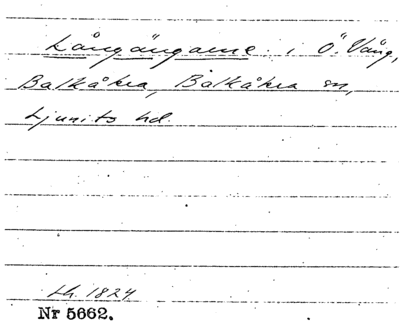 Långängarne i Ö. Vång,
Balkåkra, Balkåkra sn,
Ljunits hd.
Lh. 1824
Nr 5662.